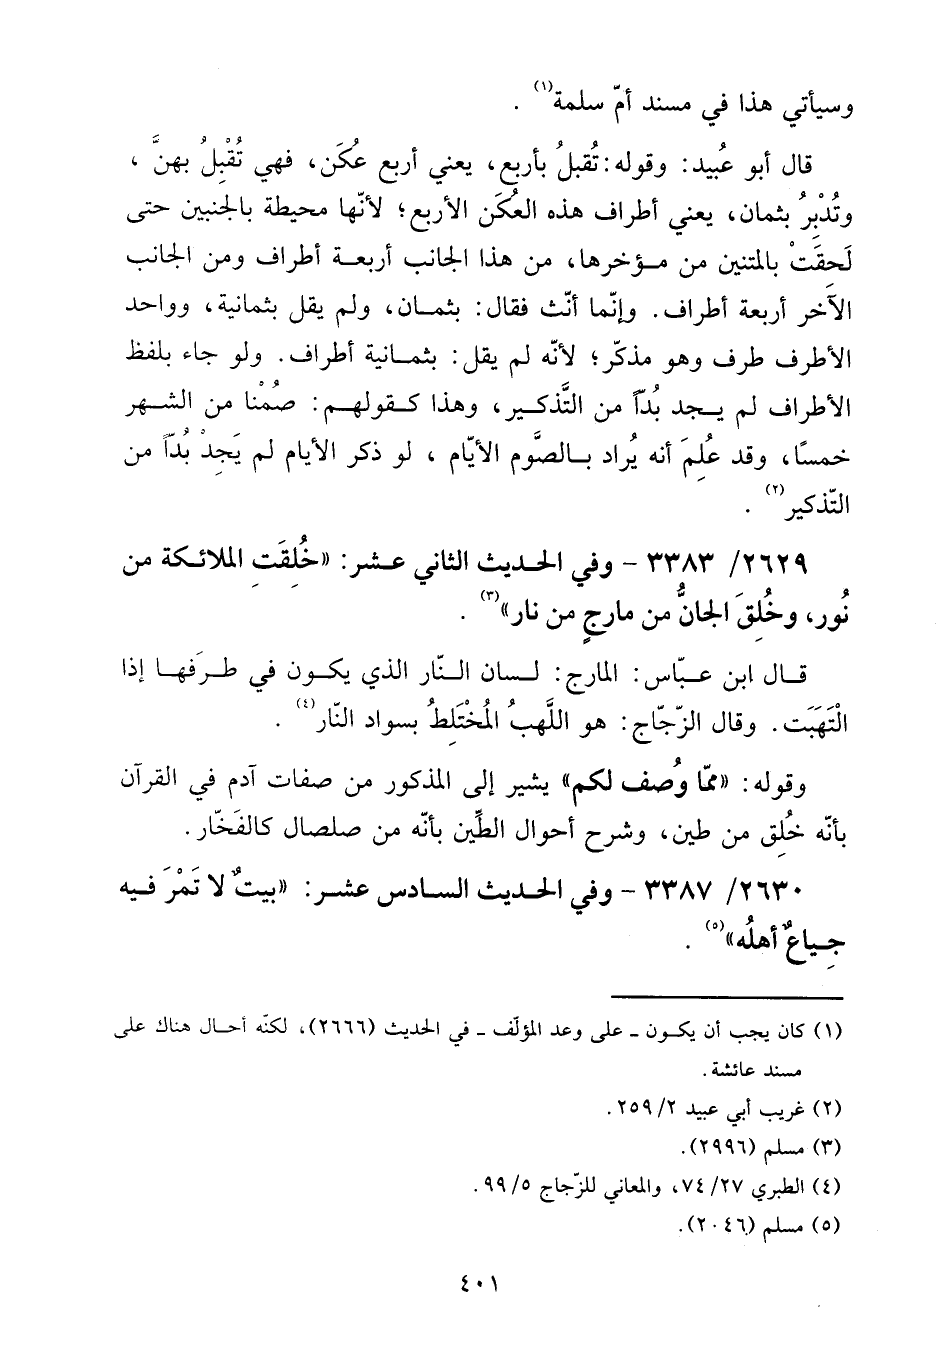 وسيأتي هذا في مسند أمّ سلمة(١) .
قال أبو عُبيد: وقوله: تُقبلُ بأربع، يعني أربع عُكَن، فهي تُقْبِلُ بهنَّ ،
وتُدْبِرُ بثمان، يعني أطراف هذه العُكَن الأربع؛ لأنّها محيطة بالجنبين حتى
لَحِقَتْ بالمتنين من مؤخرها، من هذا الجانب أربعة أطراف ومن الجانب
الآخر أربعة أطراف. وإنّما أنّث فقال: بثمان، ولم يقل بثمانية، وواحد
الأطرف طرف وهو مذكّر؛ لأنّه لم يقل: بثمانية أطراف. ولو جاء بلفظ
الأطراف لم يجد بُدّاً من التَّذكير، وهذا كقولهم: صُمْنا من الشهر
خمسًا، وقد عُلِمَ أنه يُراد بالصَّوم الأيّام ، لو ذكر الأيام لم يَجِدْ بُدّاً من
التّذكير(٢) .
٢٦٢٩/ ٣٣٨٣ - وفي الحديث الثاني عشر: «خُلِقَتِ الملائكة من
نُور، وخُلِقَ الجانُّ من مارجٍ من نار»(٣) .
قال ابن عبّاس: المارج: لسان النّار الذي يكون في طرَفها إذا
الْتَهَبَت. وقال الزّجّاج: هو اللَّهبُ المُخْتَلِطُ بسواد النّار(٤) .
وقوله: «ممّا وُصف لكم» يشير إلى المذكور من صفات آدم في القرآن
بأنّه خُلِق من طين، وشرح أحوال الطِّين بأنّه من صلصال كالفَخّار.
٢٦٣٠/ ٣٣٨٧ - وفي الحديث السادس عشر: «بيتٌ لا تَمْرَ فيه
جِياعٌ أهلُه»(٥) .
(١) كان يجب أن يكون - على وعد المؤلّف - في الحديث (٢٦٦٦)، لكنّه أحال هناك على
مسند عائشة.
(٢) غريب أبي عبيد ٢/ ٢٥٩.
(٣) مسلم (٢٩٩٦).
(٤) الطبري ٢٧/ ٧٤، والمعاني للزّجاج ٥/ ٩٩.
(٥) مسلم (٢٠٤٦).
٤٠١